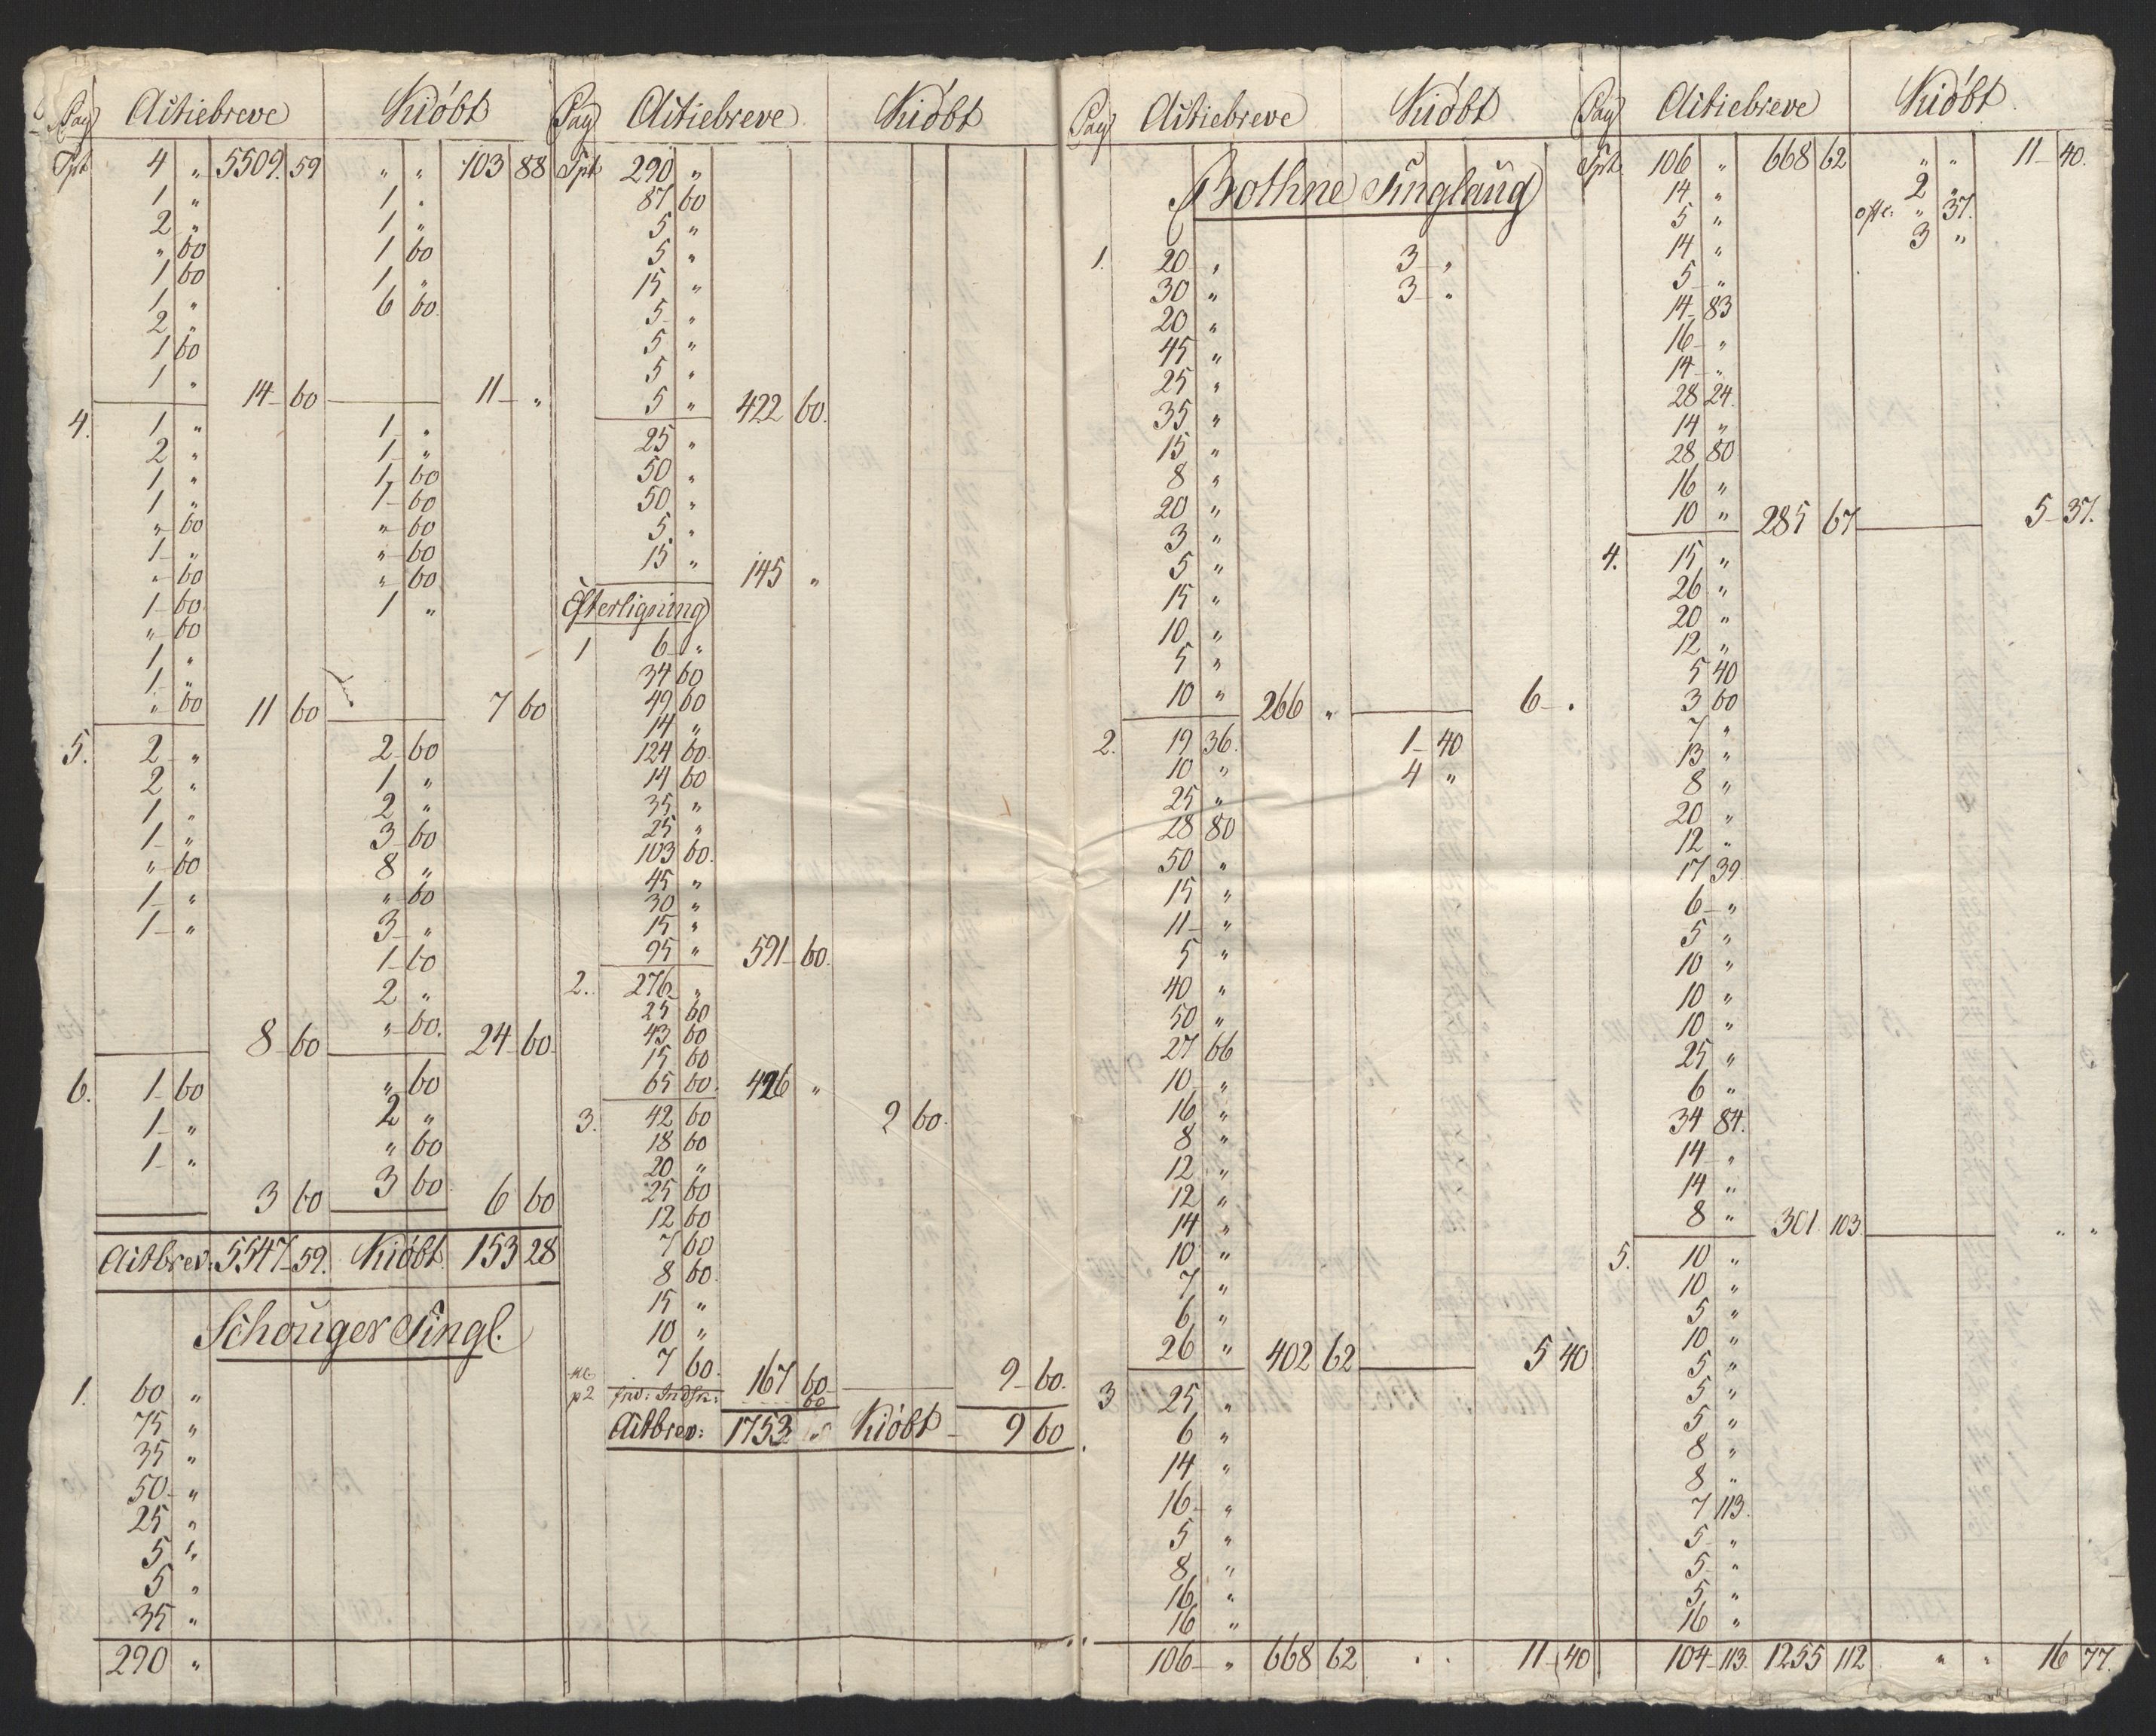 Pag Actiebreve Kiöbt
Tpt 4 " 5509. 59 " " 103 88
1 " 1 "
2 " 1 "
" 60 1 60
1 60 1 "
1 " 6 60.
2 "
1 60
1 " 14 60 11 "
4. 1 " 1 "
2 " 1 "
1 " 1 60
1 " 1 60
" 60 " 60
1 " " 60
" 60 " 60
1 60 1 "
" 60
1 "
1 "
" 60 11 60 7 60
5. 2 " 2 60
2 " 1 "
1 " 2 "
1 " 3 60
" 60 8 "
1 " " 60
1 " 3 "
1 60
2 "
" 60.
8 60 24 60
6. 1 60 " 60
1 " 2 "
1 " " 60
3 60
3 60 6 60
Actbrev: 5547 59. Kiöbt 153 28
Schouger Tingl.
1. 60 "
75 "
35 "
50 "
25 "
5 "
5 "
35 "
290 "
Pag Actiebreve Kiöbt
Tpt 290 "
87 60
5 "
5 "
15 "
5 "
5 "
5 "
5 " 422 60.
25 "
50 "
50 "
5 "
15 " 145 "
Efterligning
1 6 "
34 60
49 60
14 "
124 60
14 60
35 "
25 "
103 60.
45 "
30 "
15 "
95 " 591 60.
2. 276 "
25 60
43 60
15 60
65 60. 426 "
3. 42 60 9 60.
18 60
20 "
25 60
12 60
7 60
8 60.
15 "
10 "
7 60. 167 60 9 60.
p2 60
Actbrev: 1753 Kiöbt 9 60
Pag Actiebreve Kiöbt
Bothne Tinglaug
1. 20 " 3 "
30 " 3 "
20 "
45 "
25 "
35 "
15 "
8 "
20 "
3 "
5 "
15 "
10 "
5 "
10 " 266 " 6 "
2. 19 36. 1 40
10 " 4 "
25 "
28 80
50 "
15 "
11 "
5 "
40 "
50 "
27 66
10 "
16 "
8 "
12 "
12 "
14 "
10 "
7 "
6 "
26 " 402 62 5 40
3 25 "
6 "
14 "
16 "
5 "
8 "
16 "
16 "
106 " 668 62 " " 11 40
Pag Actiebreve Kiöbt.
Tpt. 106 " 668 62 " " 11 40.
14 " 2 "
5 " " 37.
14 " 3 "
5 "
14 83
16 "
14 "
28 24.
14 "
28 80
16 "
10 " 285 67 5 37.
4. 15 "
26 "
20 "
12 "
5 40
3 60
7 "
13 "
8 "
20 "
12 "
17 39
6 "
5 "
10 "
10 "
10 "
25 "
6 "
34 84.
14 "
14 "
8 " 301 103 " "
5. 10 "
10 "
5 "
10 "
5 "
5 "
5 "
8 "
8 "
7 113.
5 "
5 "
5 "
16 "
104 113. 1255 112 " " 16 77.